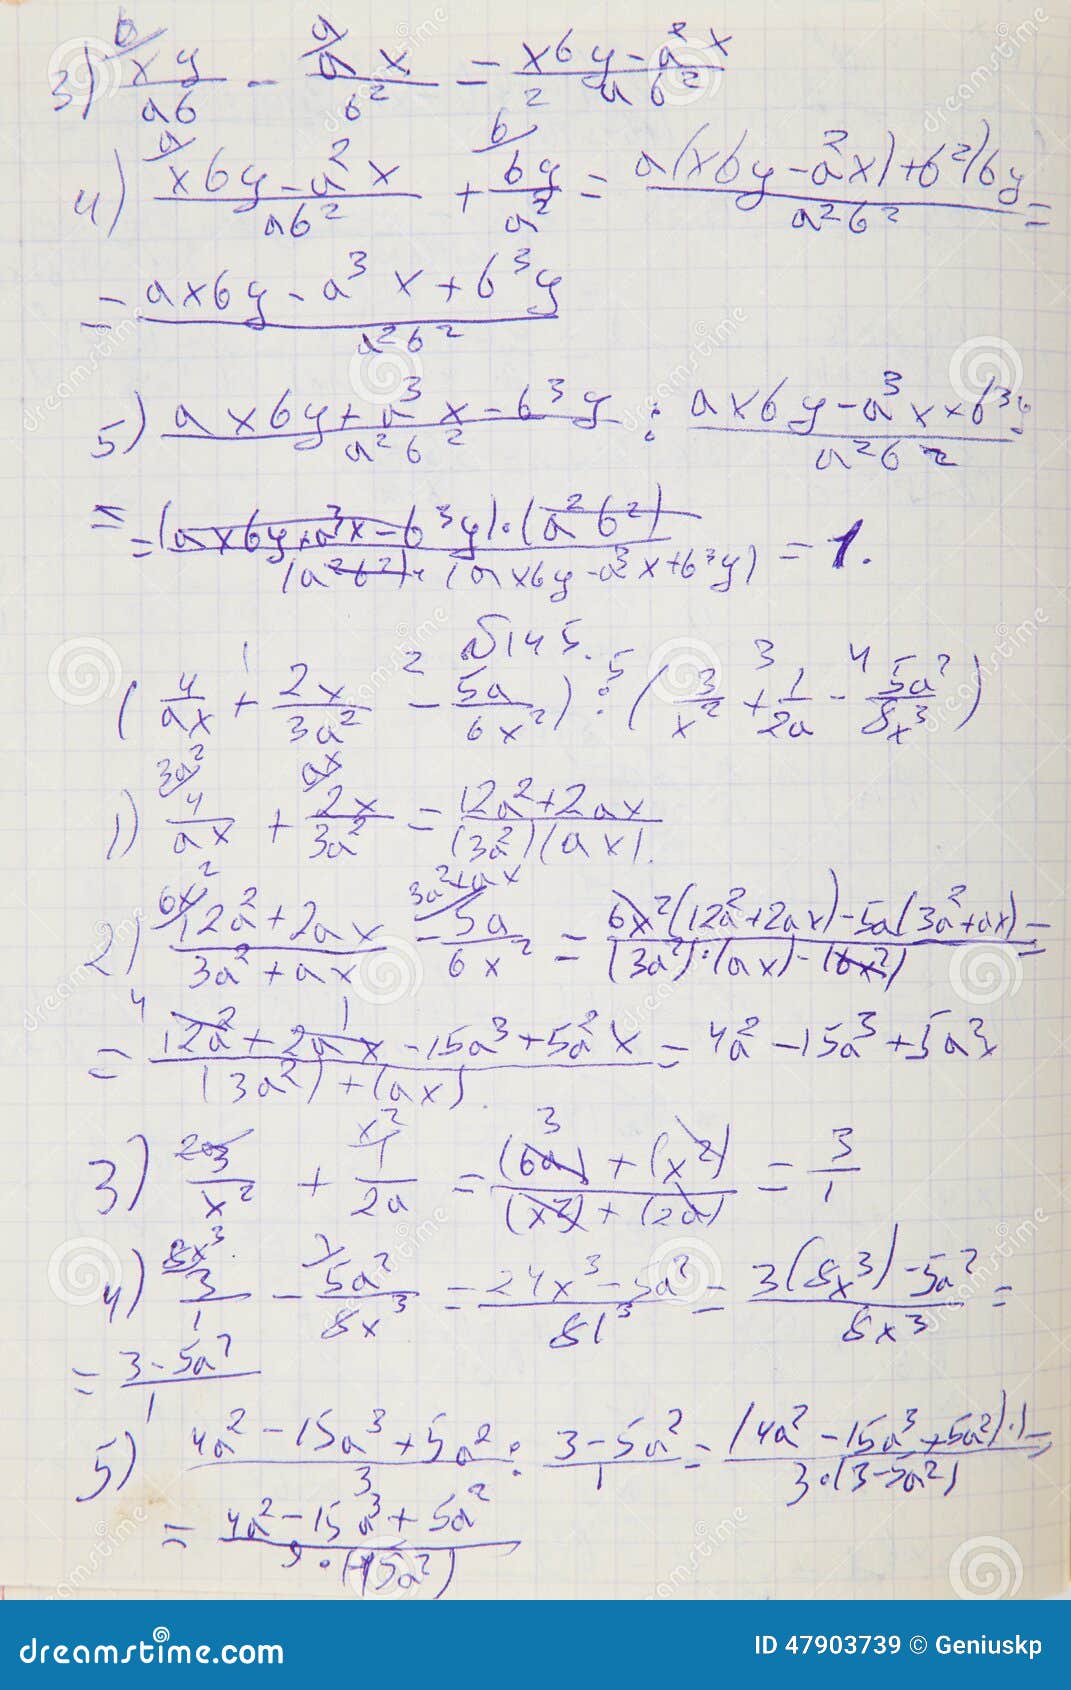 3) xy/ab - ax/b² = xby-a²x/ab²
4) xby-a²x/ab² + by/a² = a(xby-a²x)+b²(by/a²b² =
= axby-a³x+b³y/a²b²
5) axby+a³x-b³y/a²b² : axby-a³x+b³y/a²b²
= = (axby+a³x-b³y)·(a²b²)/(a²b²)·(axby-a³x+b³y) = 1.
N145.
(4/ax + 2x/3a² - 5a/6x²) : (3/x² + 1/2a - 5a²/8x³)
1) 4/ax + 2x/3a² = 12a²+2ax/(3a²)(ax).
2) 12a²+2ax/3a²+ax - 5a/6x² = 6x²(12a²+2ax)-5a(3a²+ax)/(3a²)·(ax)-(6x²) =
= 12a²+2ax-15a³+5a²x/(3a²)+(ax) = 4a²-15a³+5a²
3) 3/x² + 1/2a = (6a)+(x²)/(x²)+(2a) = 3/1
4) 3/1 - 5a²/8x³ = 24x³-5a²/8x³ = 3(8x³)-5a²/8x³ =
= 3-5a²/1
5) 4a²-15a³+5a²/3 : 3-5a²/1 = (4a²-15a³+5a²)·1/3·(3-5a²) =
= 4a²-15a³+5a²
dreamstime.com
ID 47903739 © Geniuskp